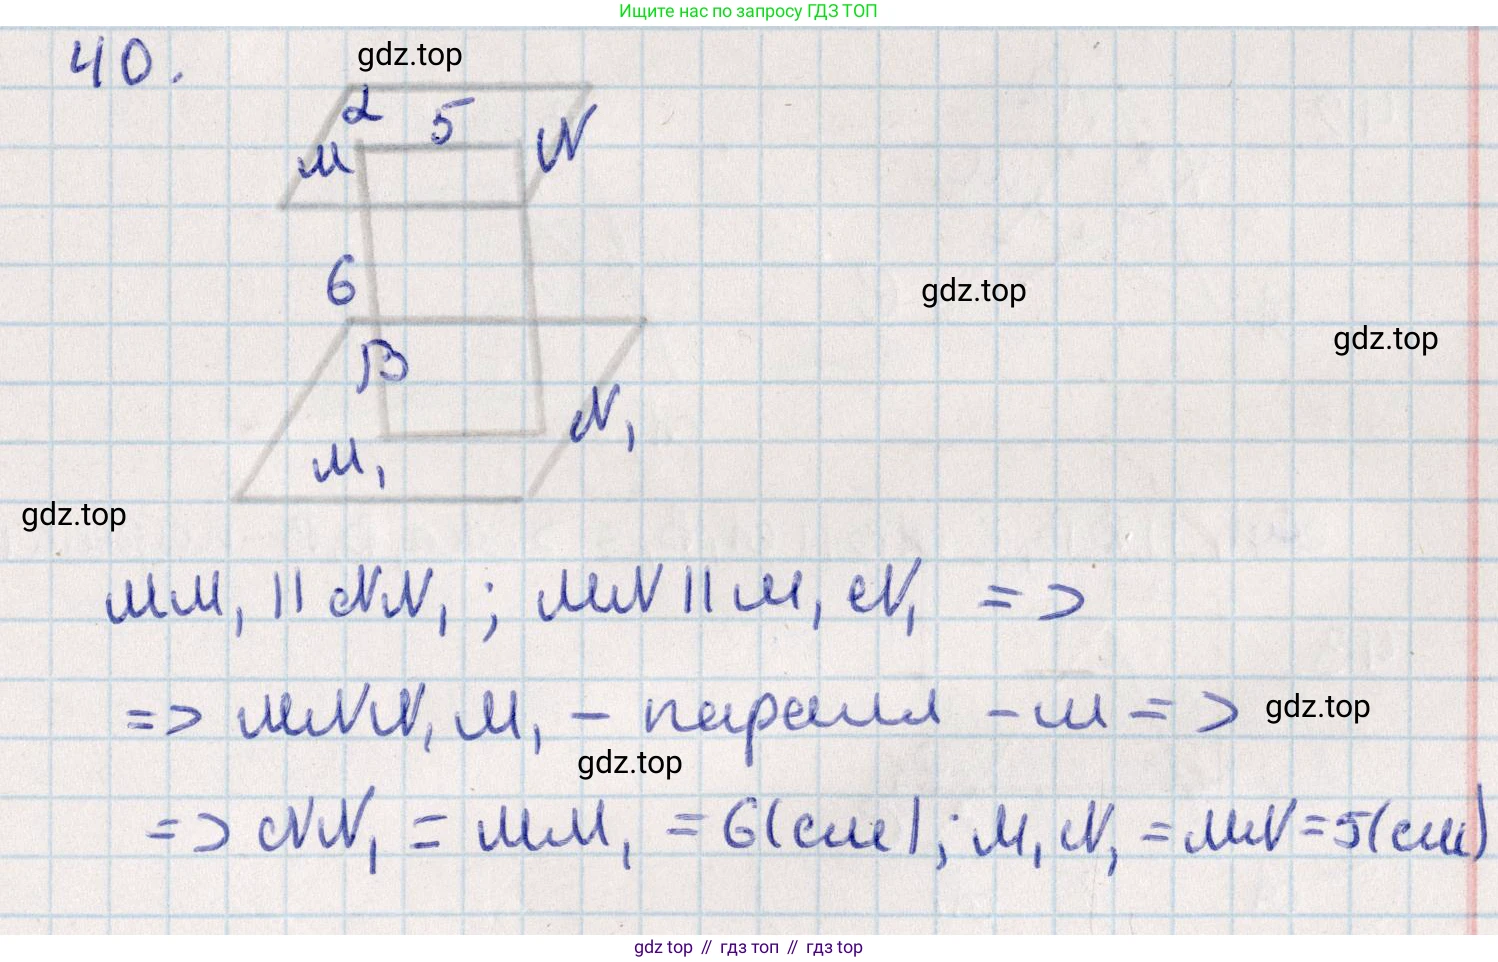 Ищите нас по запросу ГДЗ ТОП
40.
gdz.top
α
5
M
N
6
gdz.top
gdz.top
β
N₁
M₁
gdz.top
MM₁ || NN₁; MN || M₁N₁ =>
=> MNN₁M₁ - паралл - м =>
gdz.top
gdz.top
=> NN₁ = MM₁ = 6(см); M₁N₁ = MN = 5(см)
gdz top // гдз топ // гдз top